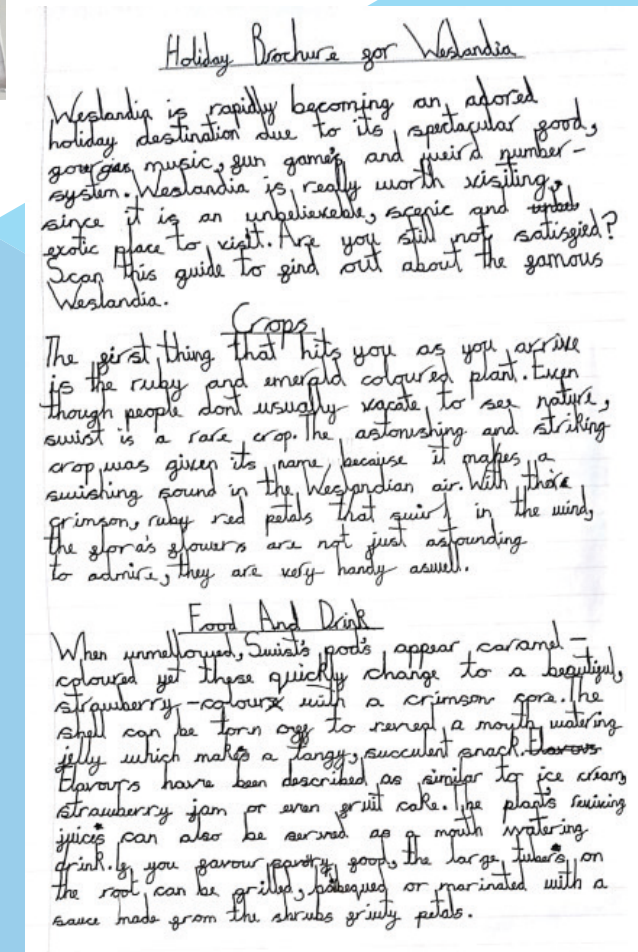 Holiday Brochure for Weslandia
Weslandia is rapidly becoming an adored
holiday destination due to its spectacular food,
music, fun game's and weird number-
system. Weslandia is really worth visiting,
since it is an unbelieveble, scenic and
exotic place to visit. Are you still not satisfied?
Scan this guide to find out about the famous
Weslandia.
Crops
The first thing that hits you as you arrive
is the ruby and emerald coloured plant. Even
though people dont usually vacate to see nature,
swist is a rare crop. The astonishing and striking
crop was given its name because it makes a
swishing sound in the Weslandian air. With
crimson, ruby red petals that swirl in the wind,
the flora's flowers are not just astounding
to admire, they are very handy aswell.
Food And Drink
When unmellowed, Swist's pod's appear caramel-
coloured yet these quickly change to a beautiful,
strawberry-colour with a crimson core. The
shell can be torn off to reveal a mouth watering
jelly which makes a tangy, succulent snack.
Flavours have been described as similar to ice cream,
strawberry jam or even fruit cake. The plant's reviving
juices can also be served as a mouth watering
drink. If you favour food, the large tuber's on
the root, can be grilled, or marinated with a
sauce made from the shrubs fruity petals.